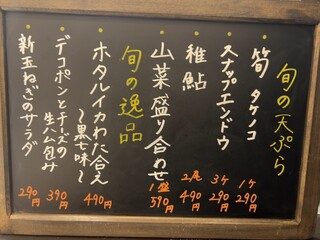 旬の天ぷら
・筍 タケノコ 1ケ 290円
・スナップエンドウ 3ケ 290円
・稚鮎 2尾 490円
・山菜盛り合わせ 1盛 590円
旬の逸品
・ホタルイカわた合え
~黒七味~ 490円
・デコポンとチーズの
生ハム包み 390円
・新玉ねぎのサラダ 290円